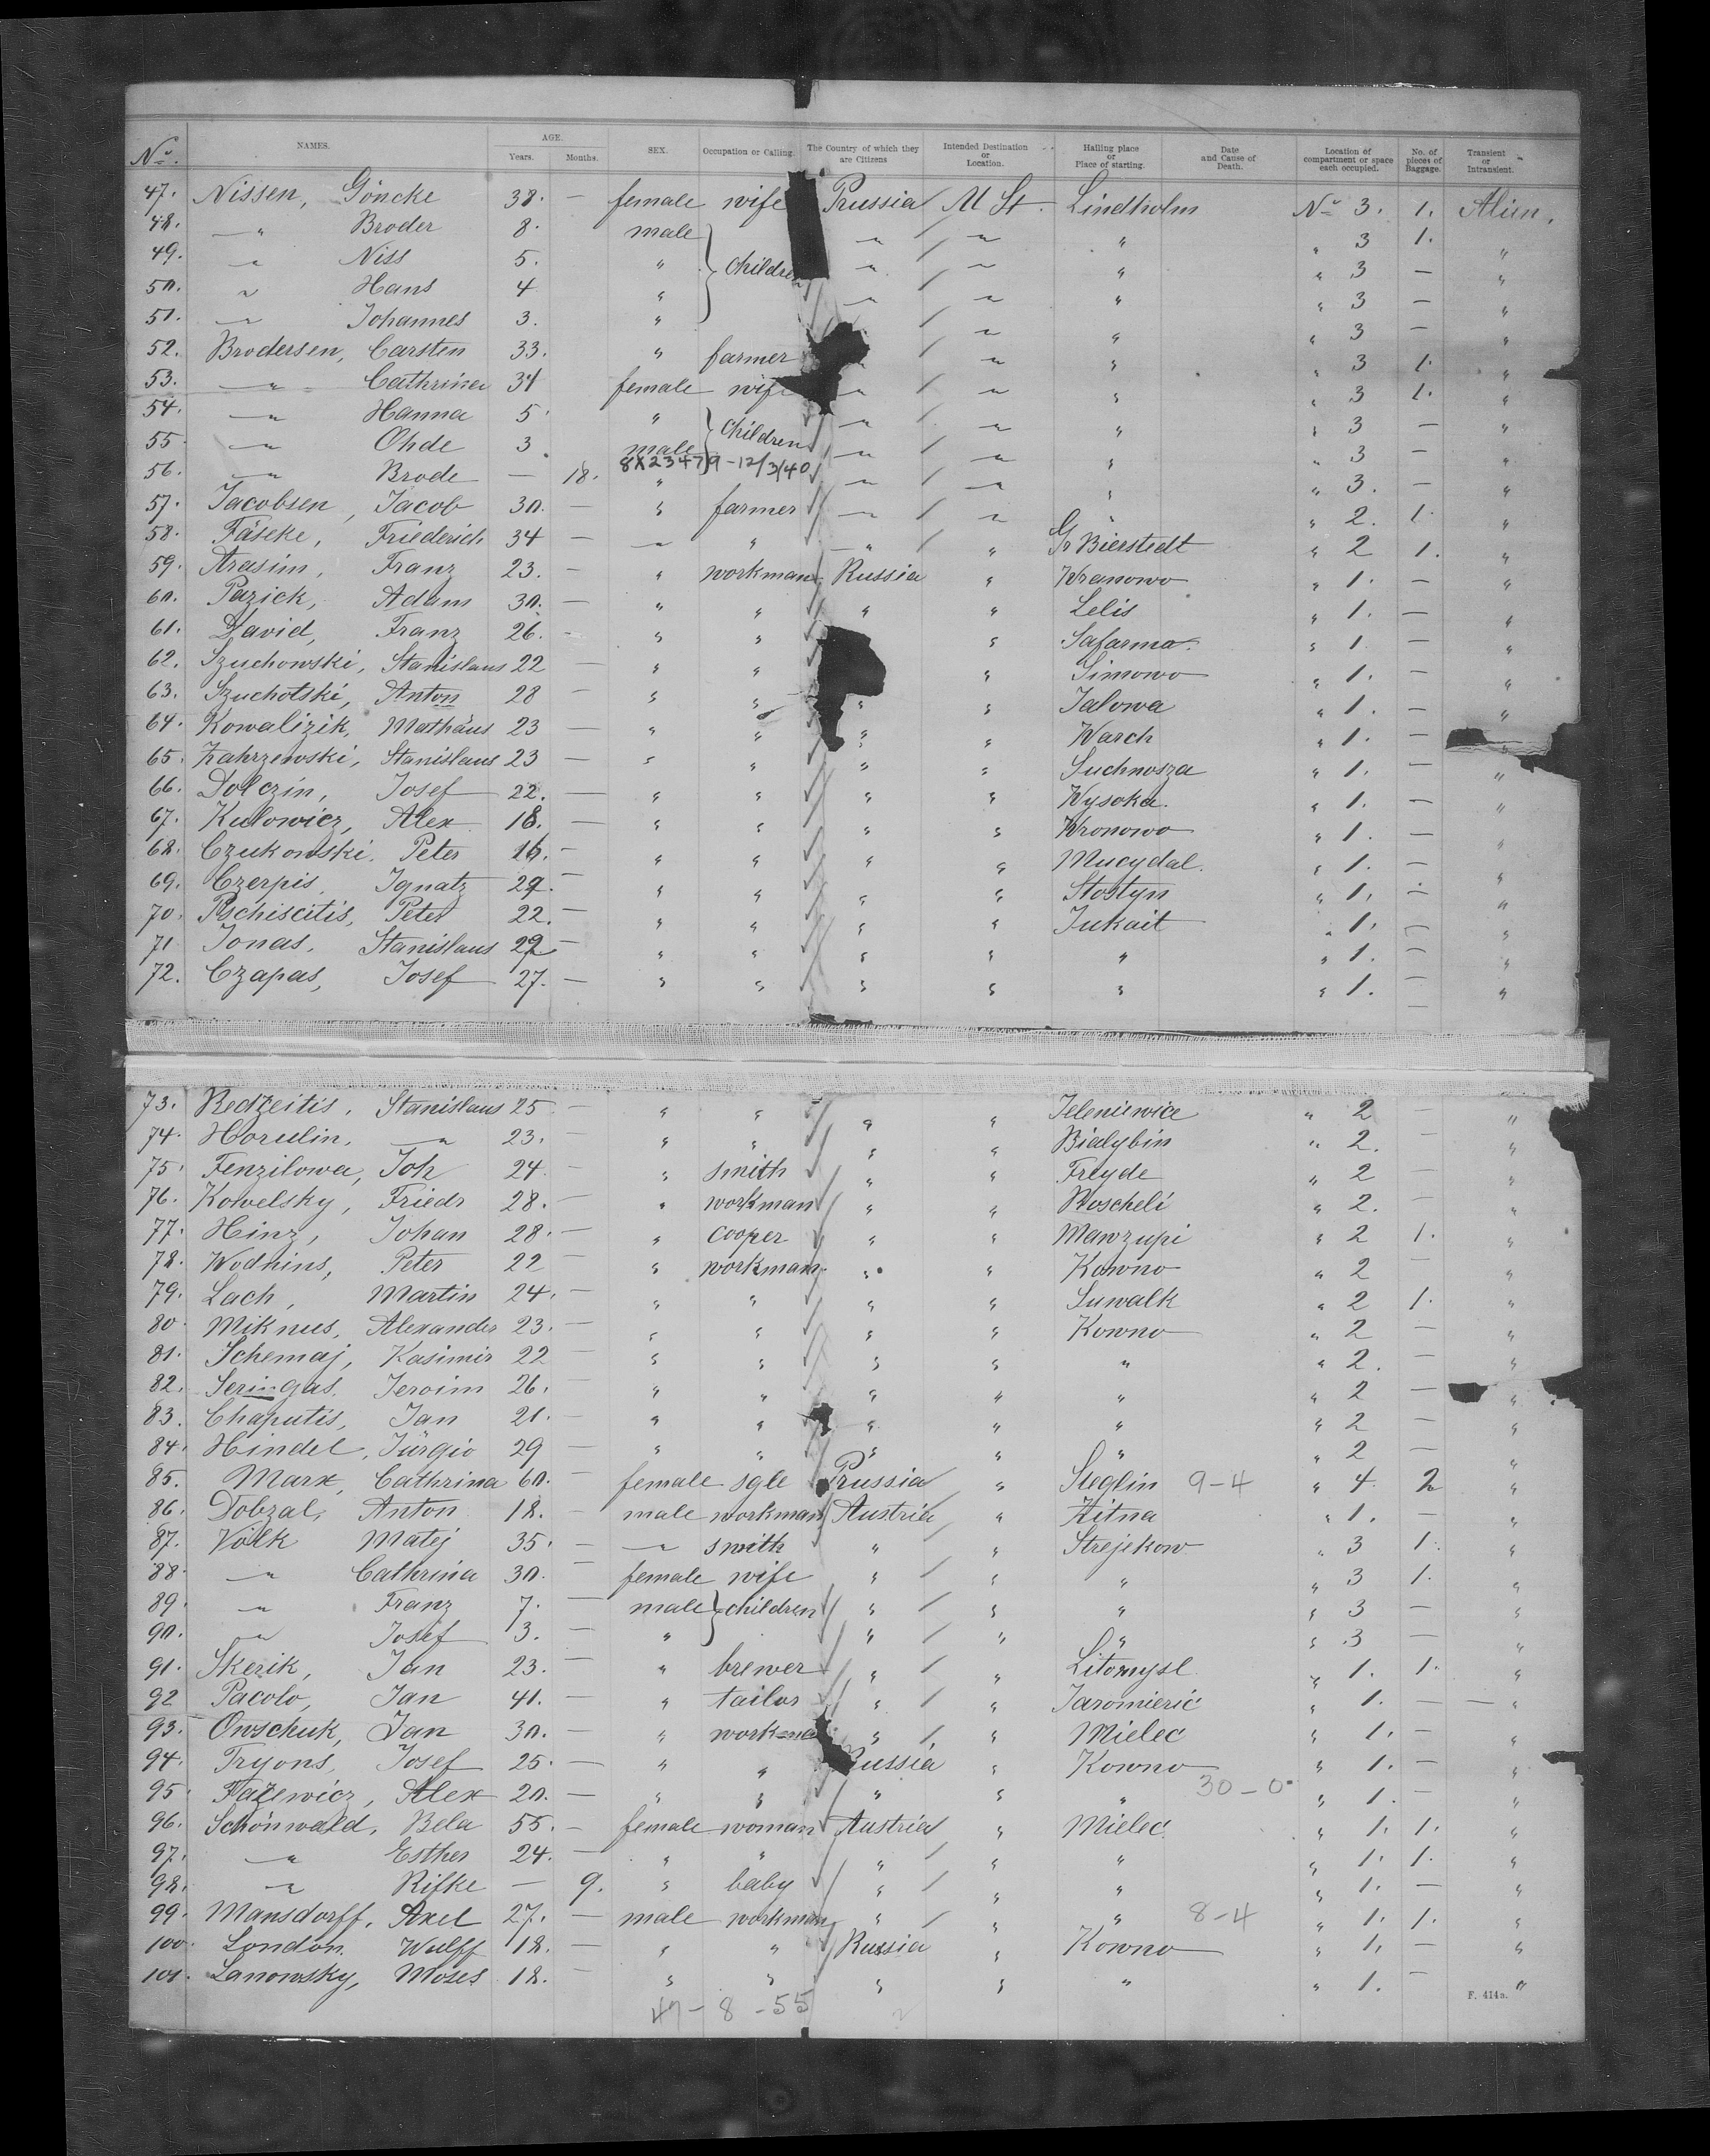 No. NAMES. AGE. Years. Months. SEX. Occupation or Calling. The Country of which they are Citizens Intended Destination or Location. Hailing place or Place of starting. Date and Cause of Death. Location of compartment or space each occupied. No. of pieces of Baggage. Transient or Intransient.
47. Nissen, Göncke 38. — female wife Prussia U St. Lindholm No 3. 1. Alien.
48. —"— Broder 8. male " " " " 3 1. "
49. " Niss 5. " children " " " " 3 — "
50. " Hans 4 " " " " " 3 — "
51. " Johannes 3. " " " " 3 — "
52. Brodersen, Carsten 33. " farmer " " " 3 1. "
53. —"— Cathrina 31 female wife " " " " 3 1. "
54. —"— Hanna 5. " children " " " " 3 — "
55 —"— Ohde 3 male " " " " 3 — "
8X23479-12/3/40
56. —"— Brode — 18. " " " " " 3. — "
57. Jacobsen, Jacob 30. — " farmer " " " " 2. 1. "
58. Fäseke, Friederich 34 — " " " " Gr Bierstedt " 2 1. "
59. Arasim, Franz 23. — " workman Russia " Wranowo " 1. — "
60. Pazick, Adam 30. — " " " " Lelis " 1. — "
61. David, Franz 26. - " " " Safarma " 1 — "
62. Szuchowski, Stanislaus 22 — " " " Simowo " 1. — "
63. Szuchotski, Anton 28 — " " " " Jalowa " 1. — "
64. Kowalizik, Mathäus 23 — " " " " Warch " 1. —
65. Zahrzewski, Stanislaus 23 — " " " " Suchnosza " 1. — "
66. Dolczin, Josef 22. — " " " " Wysoka. " 1. — "
67. Kulowicz, Alex 18. — " " " " Wronowo " 1. — "
68. Czukowski, Peter 16. — " " " " Mucydal. " 1. — "
69. Czerpis, Ignatz 29. — " " " " Stostyn " 1. — "
70. Pschiscitis, Peter 22. — " " " " Jukait " 1. — "
71 Jonas, Stanislaus 29 — " " " " " " 1. — "
72. Czapas, Josef 27. — " " " " " " 1. — "
73. Redzeitis, Stanislaus 25 — " " " " Jeleniewice " 2 — "
74. Horulin, —"— 23. " " " " Bialybin " 2. — "
75. Fenzilowa, Joh 24 " smith " " Freyde " 2 — "
76. Kowelsky, Friedr 28. — " workman " " Woscheli " 2. — "
77. Hinz, Johan 28. — " cooper " " Mawzupi " 2 1. "
78. Wodhins, Peter 22 — " workman " " Kowno " 2 — "
79. Lach, Martin 24. — " " " " Suwalk " 2 1. "
80. Miknus, Alexander 23. — " " " " Kowno " 2 — "
81. Schemaj, Kasimir 22 — " " " " " " 2. — "
82. Seringas, Jeroim 26. — " " " " " " 2 — "
83. Chaputis, Jan 21. — " " " " " " 2 — "
84. Hindel, Jürgio 29 — " " " " " " 2 — "
85. Marx, Cathrina 60. — female sgle Prussia " Steglin 9-4 " 4. 2 "
86. Dobzal, Anton 18. — male workman Austria " Zitna " 1. — "
87. Volk Matej 35. — " smith " " Strejekow " 3 1. "
88. —"— Cathrina 30. — female wife " " " " 3 1. "
89. —"— Franz 7. — male children " " " " 3 — "
90. —"— Josef 3. — " " " " " 3 — "
91. Skerik, Jan 23. — " brewer " " Litomysl " 1. 1. "
92 Pacolo, Jan 41. — " tailor " " Jaromieric " 1. — "
93. Owschuk, Jan 30. — " workman " " Mielec " 1. — "
94. Tryons, Josef 25. — " " Russia " Kowno " 1. — "
95. Fazewicz, Alex 20. — " " " " " 30-0 " 1. — "
96. Schönwald, Bela 55. — female woman Austria " Mielec " 1. 1. "
97. —"— Esther 24. — " " " " " " 1. 1. "
98. —"— Rifke — 9. " baby " " " " 1. — "
99. Mansdorff, Axel 27. — male workman " " " 8-4 " 1. 1. "
100. London, Wulff 18. — " " Russia " Kowno " 1. — "
101. Lanowsky, Moses 18. — " " " " " " 1. — "
F. 414a.
47-8-55